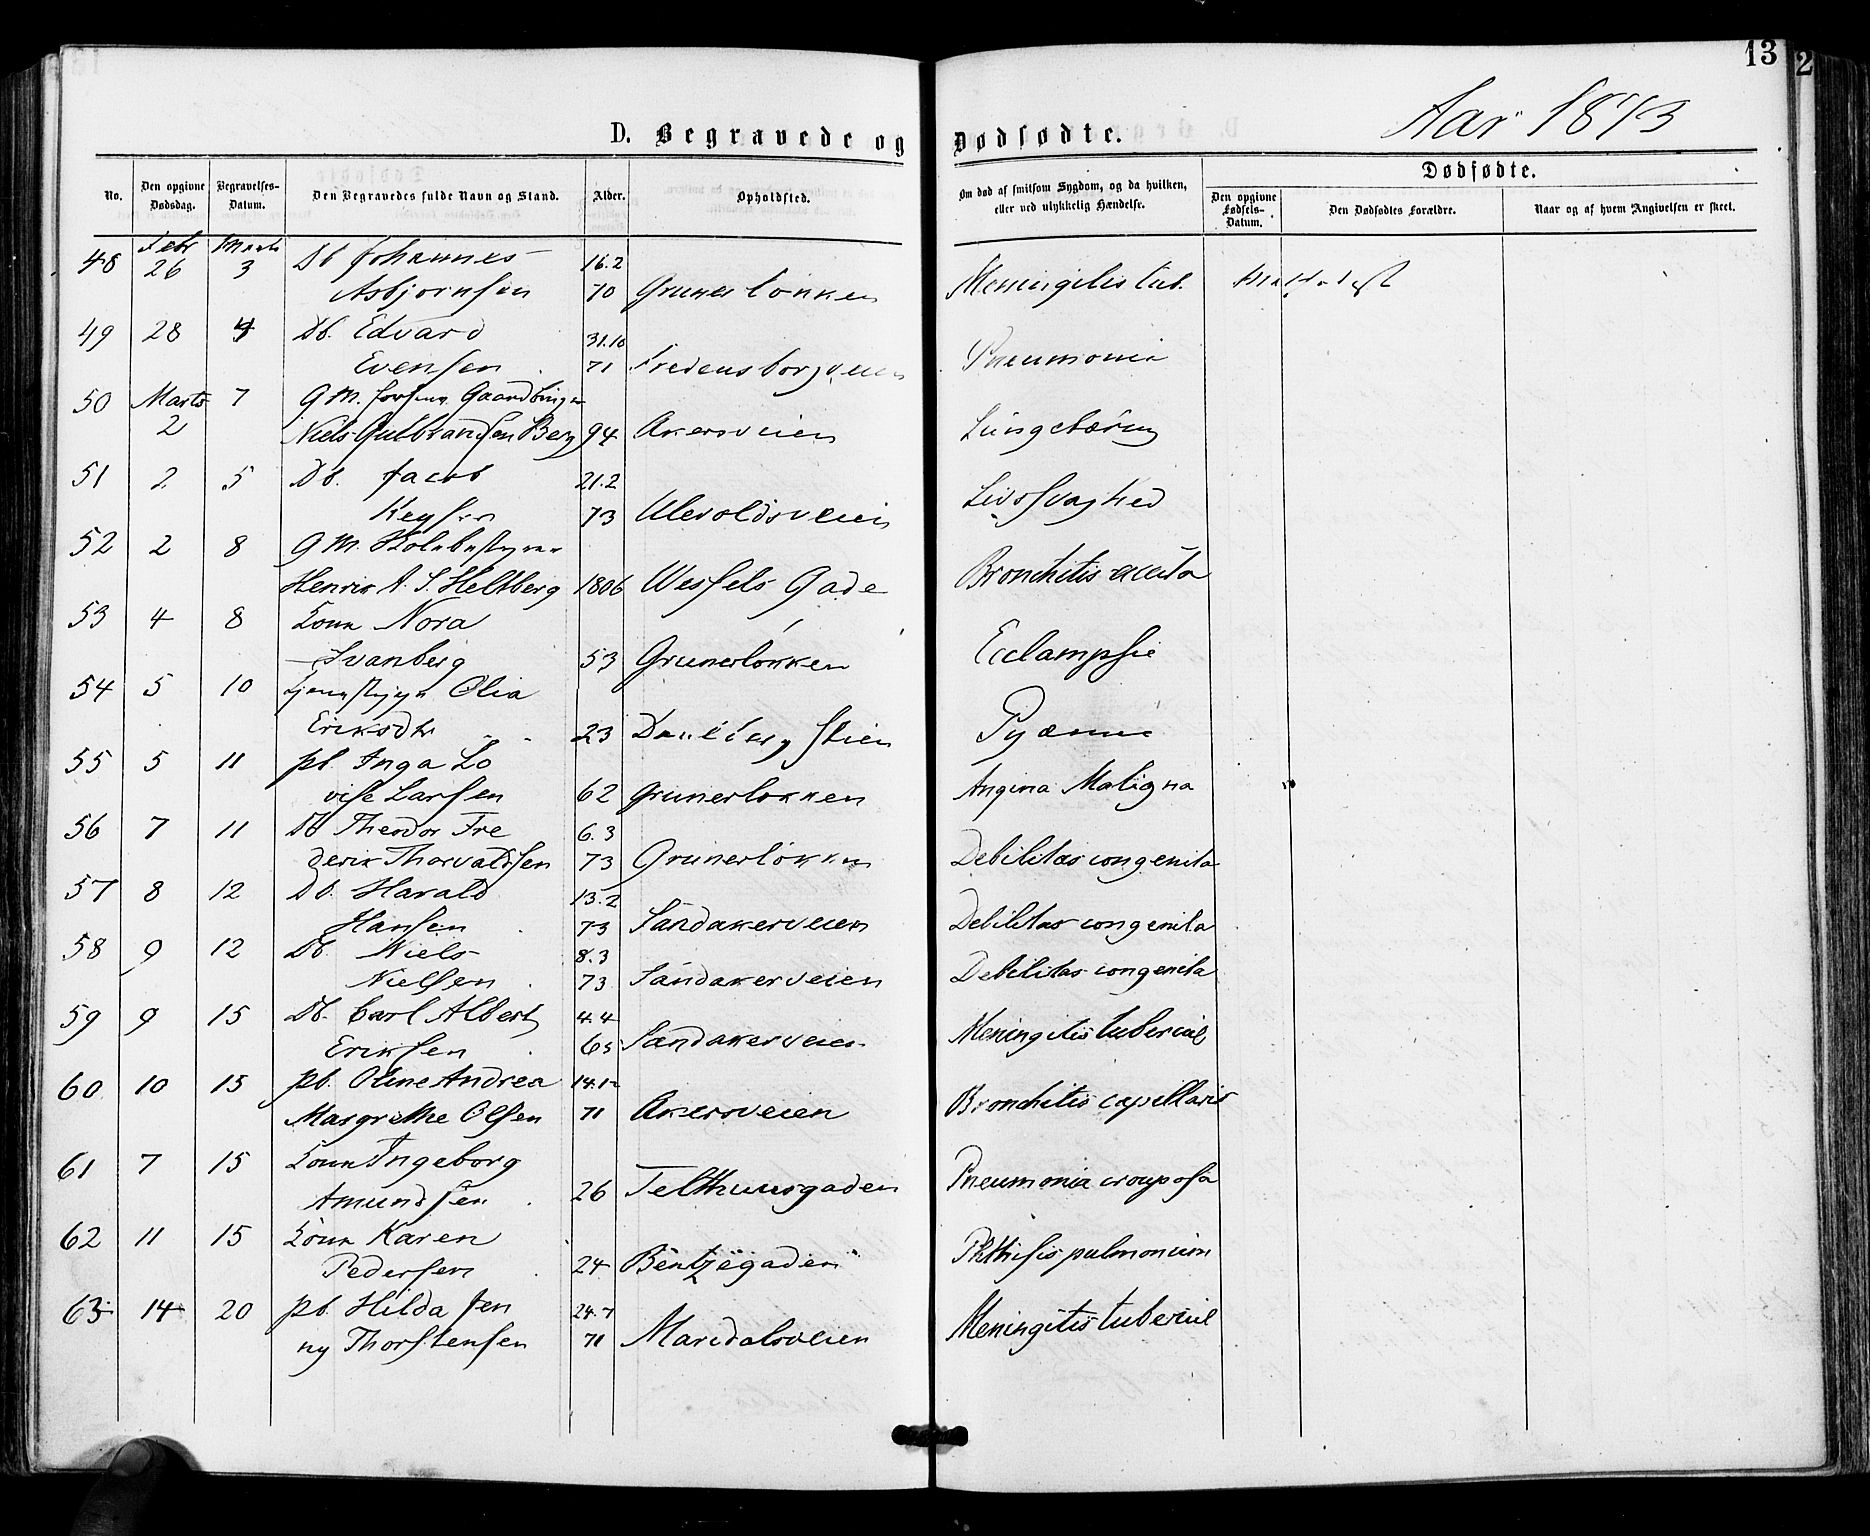 13
2
Aar 1873
D. Begravede og Dødsfødte.
No. Den opgivne Dødsdag. Begravelses-Datum. Den Begravedes fulde Navn og Stand. Alder. Opholdsted. Om død af smitsom Sygdom, og da hvilken, eller ved ulykkelig Hændelse. Dødfødte.
Den opgivne Fødsels-Datum. Den Dødfødtes Forældre. Naar og af hvem Angivelsen er skeet.
48 Febr 26 Marts 3 Db Johannes 16.2
Asbjørnsen 70 Grunerløkken Meningitis tub.
49 28 4 Db. Edvard 31.10
Evensen 71 Fredensborgveien Pneumonia
50 Marts 2 7 G M.
Niels Gulbrandsen Berg 94 Akersveien Lungetæring
51 2 5 Db. Jacob 21.2
Keyser 73 Ulevoldsveien Livssvaghed
52 2 8 G M. Skolebestyrer
Henrik A. S. Heltberg 1806 Wessels Gade Bronchitis acuta
53 4 8 Kone Nora
Svanberg 53 Grunerløkken Eclampsie
54 5 10 Olia
Eriksdtr 23 Pyæmie
55 5 11 pb. Inga Lo
vise Larsen 62 Grunerløkken Angina Maligna
56 7 11 Db Theodor Fre 6.3
derik Thorvaldsen 73 Grunerløkken Debilitas congenita
57 8 12 Db. Harald 13.2
Hansen 73 Sandakerveien Debilitas congenita
58 9 12 Db. Niels 8.3
Nielsen 73 Sandakerveien Debilitas congenita
59 9 15 Db. Carl Albert 4.4
Eriksen 65 Sandakerveien Meningitis tubercul
60 10 15 pb. Oline Andrea 14.12
Margrethe Olsen 71 Akersveien Bronchitis capillaris
61 7 15 Kone Ingeborg
Amundsen 26 Telthuusgaden Pneumonia crouposa
62 11 15 Kone Karen
Pedersen 24 Bentzegaden Phthisis pulmonum
63 14 20 pb. Hilda Jen 24.7
ny Thorstensen 71 Maridalsveien Meningitis tubercul